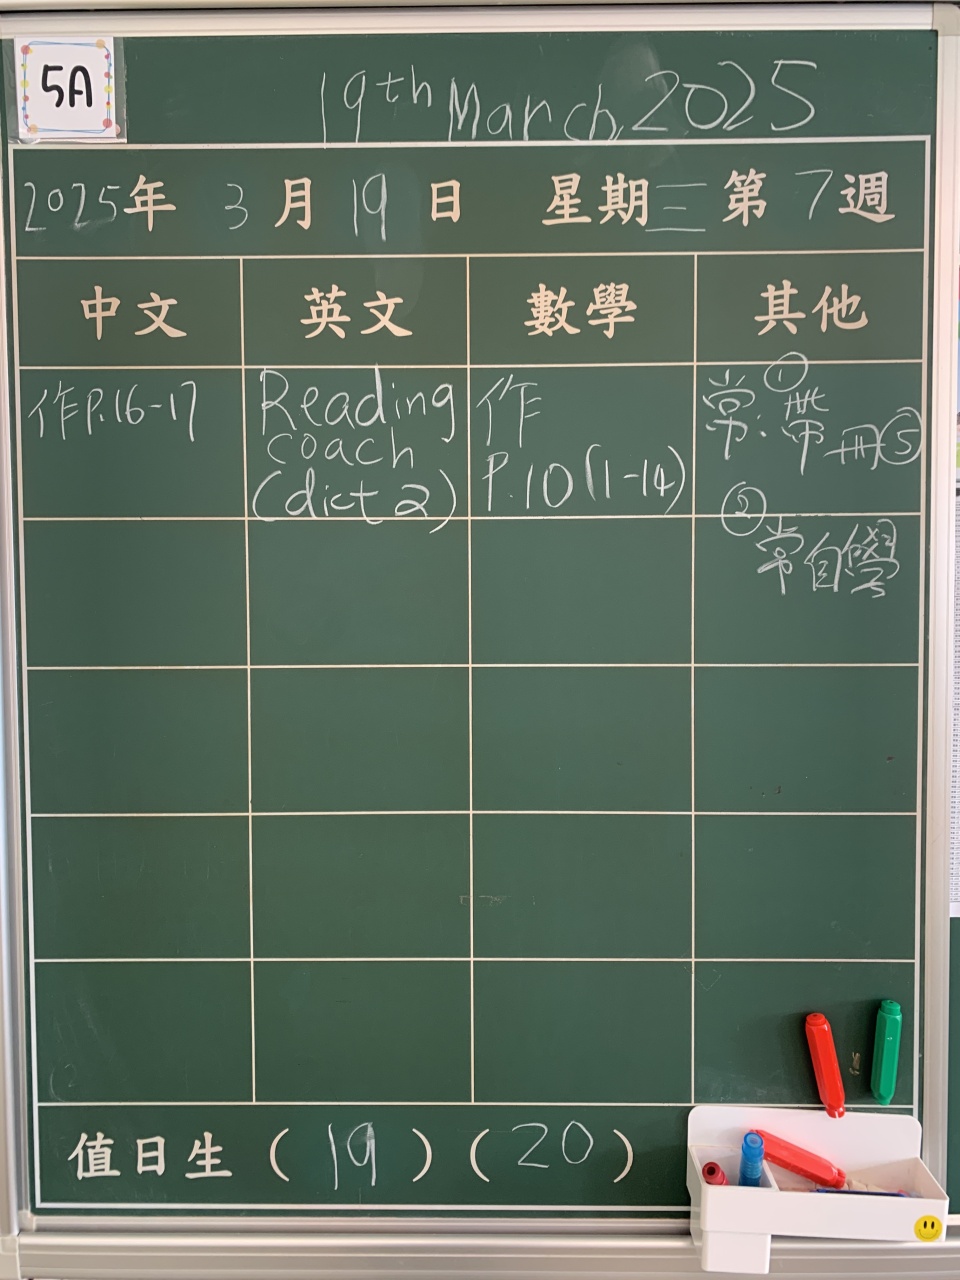 5A
19th March, 2025
2025年 3月19日 星期三 第7週
中文 英文 數學 其他
作P.16-17
Reading
coach
(dict 2)
作
P.10(1-14)
①
常:帶冊⑤
②
常自學
值日生(19)(20)